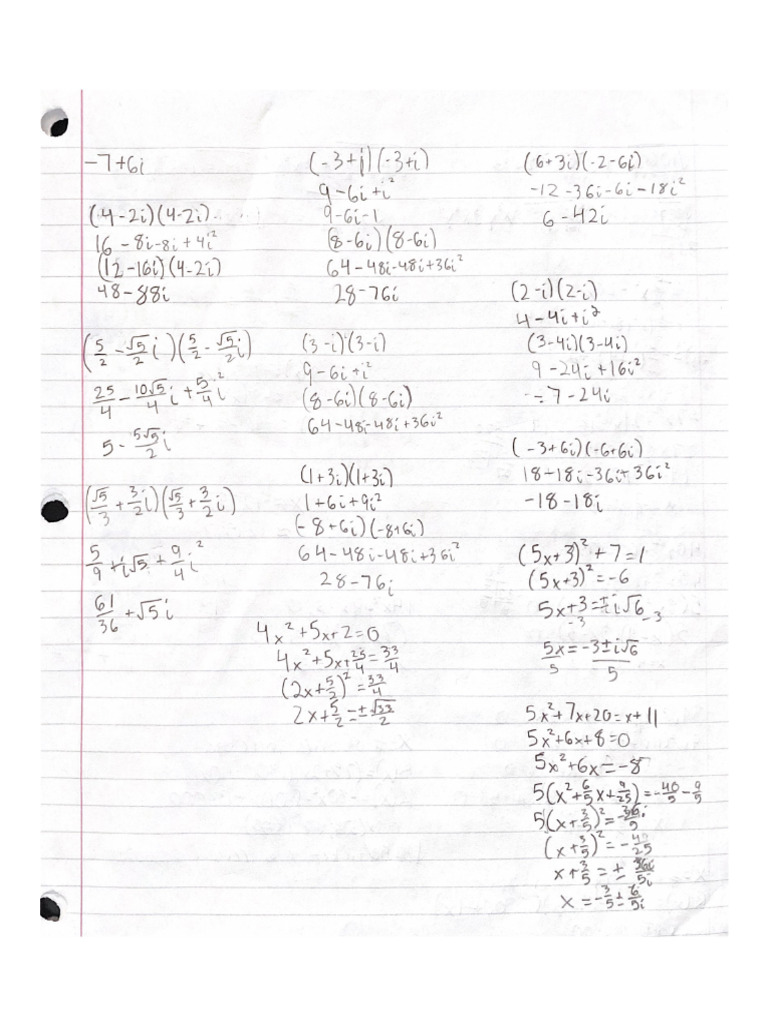 -7+6i
(4-2i)(4-2i)
16-8i-8i+4i²
(12-16i)(4-2i)
48-88i
(5/2-√5/2 i)(5/2-√5/2 i)
25/4-10√5/4 i+5/4 i²
5-5√5/2 i
(√5/3+3/2 i)(√5/3+3/2 i)
5/9+i√5+9/4 i²
61/36+√5i
(-3+i)(-3+i)
9-6i+i²
9-6i-1
(8-6i)(8-6i)
64-48i-48i+36i²
28-76i
(3-i)(3-i)
9-6i+i²
(8-6i)(8-6i)
64-48i-48i+36i²
(1+3i)(1+3i)
1+6i+9i²
(-8+6i)(-8+6i)
64-48i-48i+36i²
28-76i
4x²+5x+2=0
4x²+5x+25/4=33/4
(2x+5/2)²=33/4
2x+5/2=±√33/2
(6+3i)(-2-6i)
-12-36i-6i-18i²
6-42i
(2-i)(2-i)
4-4i+i²
(3-4i)(3-4i)
9-24i+16i²
=7-24i
(-3+6i)(-6+6i)
18-18i-36i+36i²
-18-18i
(5x+3)²+7=1
(5x+3)²=-6
5x+3=±i√6
-3 -3
5x=-3±i√6
5 5
5x²+7x+20=x+11
5x²+6x+8=0
5x²+6x=-8
5(x²+6/5x+9/25)=-40/5-9/5
5(x+3/5)²=-36i/5
(x+3/5)²=-40/25
x+3/5=± 36i/5i
x=-3/5±6/5i